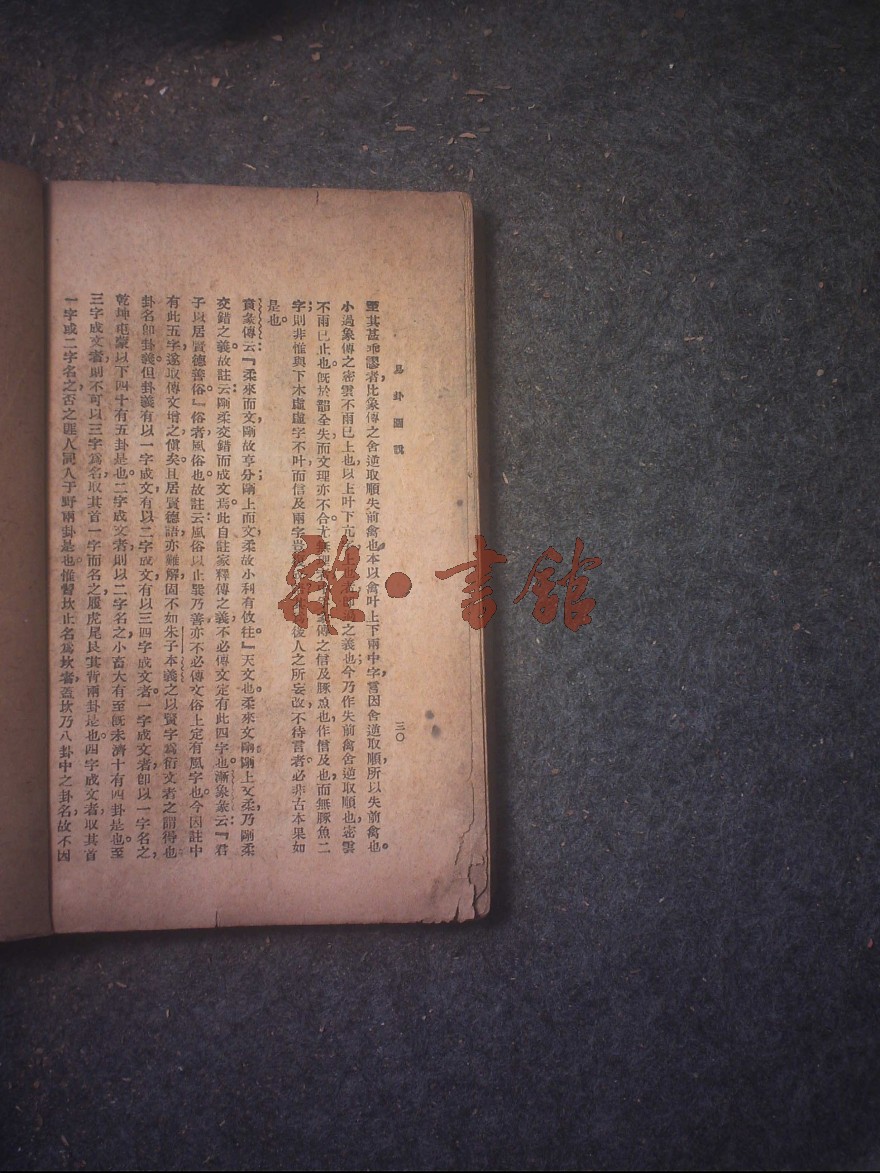 易卦圖說
三〇
至其甚乖謬者,比象傳之舍逆取順,失前禽也,本以禽叶上下兩中字,言因舍逆取順,所以失前禽也。
小過象傳之密雲不雨,已上也,以上叶下亢之義也;今乃作失前禽,舍逆取順也,密雲
不雨,已止也,旣於韻全失,而文理亦不合,尤無理傳之信及豚魚也,作信及也,而無豚魚二
字;則非惟與下木虛虛字不叶,而信及兩字後人之所妄改,不待言者,必非古本果如
是也。
賁彖傳云:『柔來而文剛,故亨;分剛上而文柔,故小利有攸往。』天文也。柔來文剛,剛上文柔,乃剛柔
交錯之義。故註云:剛柔交錯而成文焉。此自註家釋傳之義,不必傳文定有此四字也。漸象彖云:『君
子以居賢德善俗。』俗者,風俗也。故註云:風俗以止巽乃善,亦不必傳文俗上定有風字也。今因註中
有此五字,遂取傳文增之,愼矣。且居賢德語亦難解,固不如朱子本義之以賢字爲衍文者之謂得也。
卦名卽卦義,但卦義有以一字成文,有以二字成文,有以三四字成文者。一字成文者,卽以一字名之,
乾坤屯蒙以下四十有五卦是也。二字成文者,則以二字名之,小畜大有至旣未濟十有四卦是也。至
三字成文者,則不可以三字爲名,取其首一字而名之,履虎尾艮其背兩卦是也。四字成文者,取其首
一字或二字名之,否之匪人同人于野兩卦是也。惟習坎止名爲坎者,蓋坎乃八卦中之卦名,故不因
雜·書館